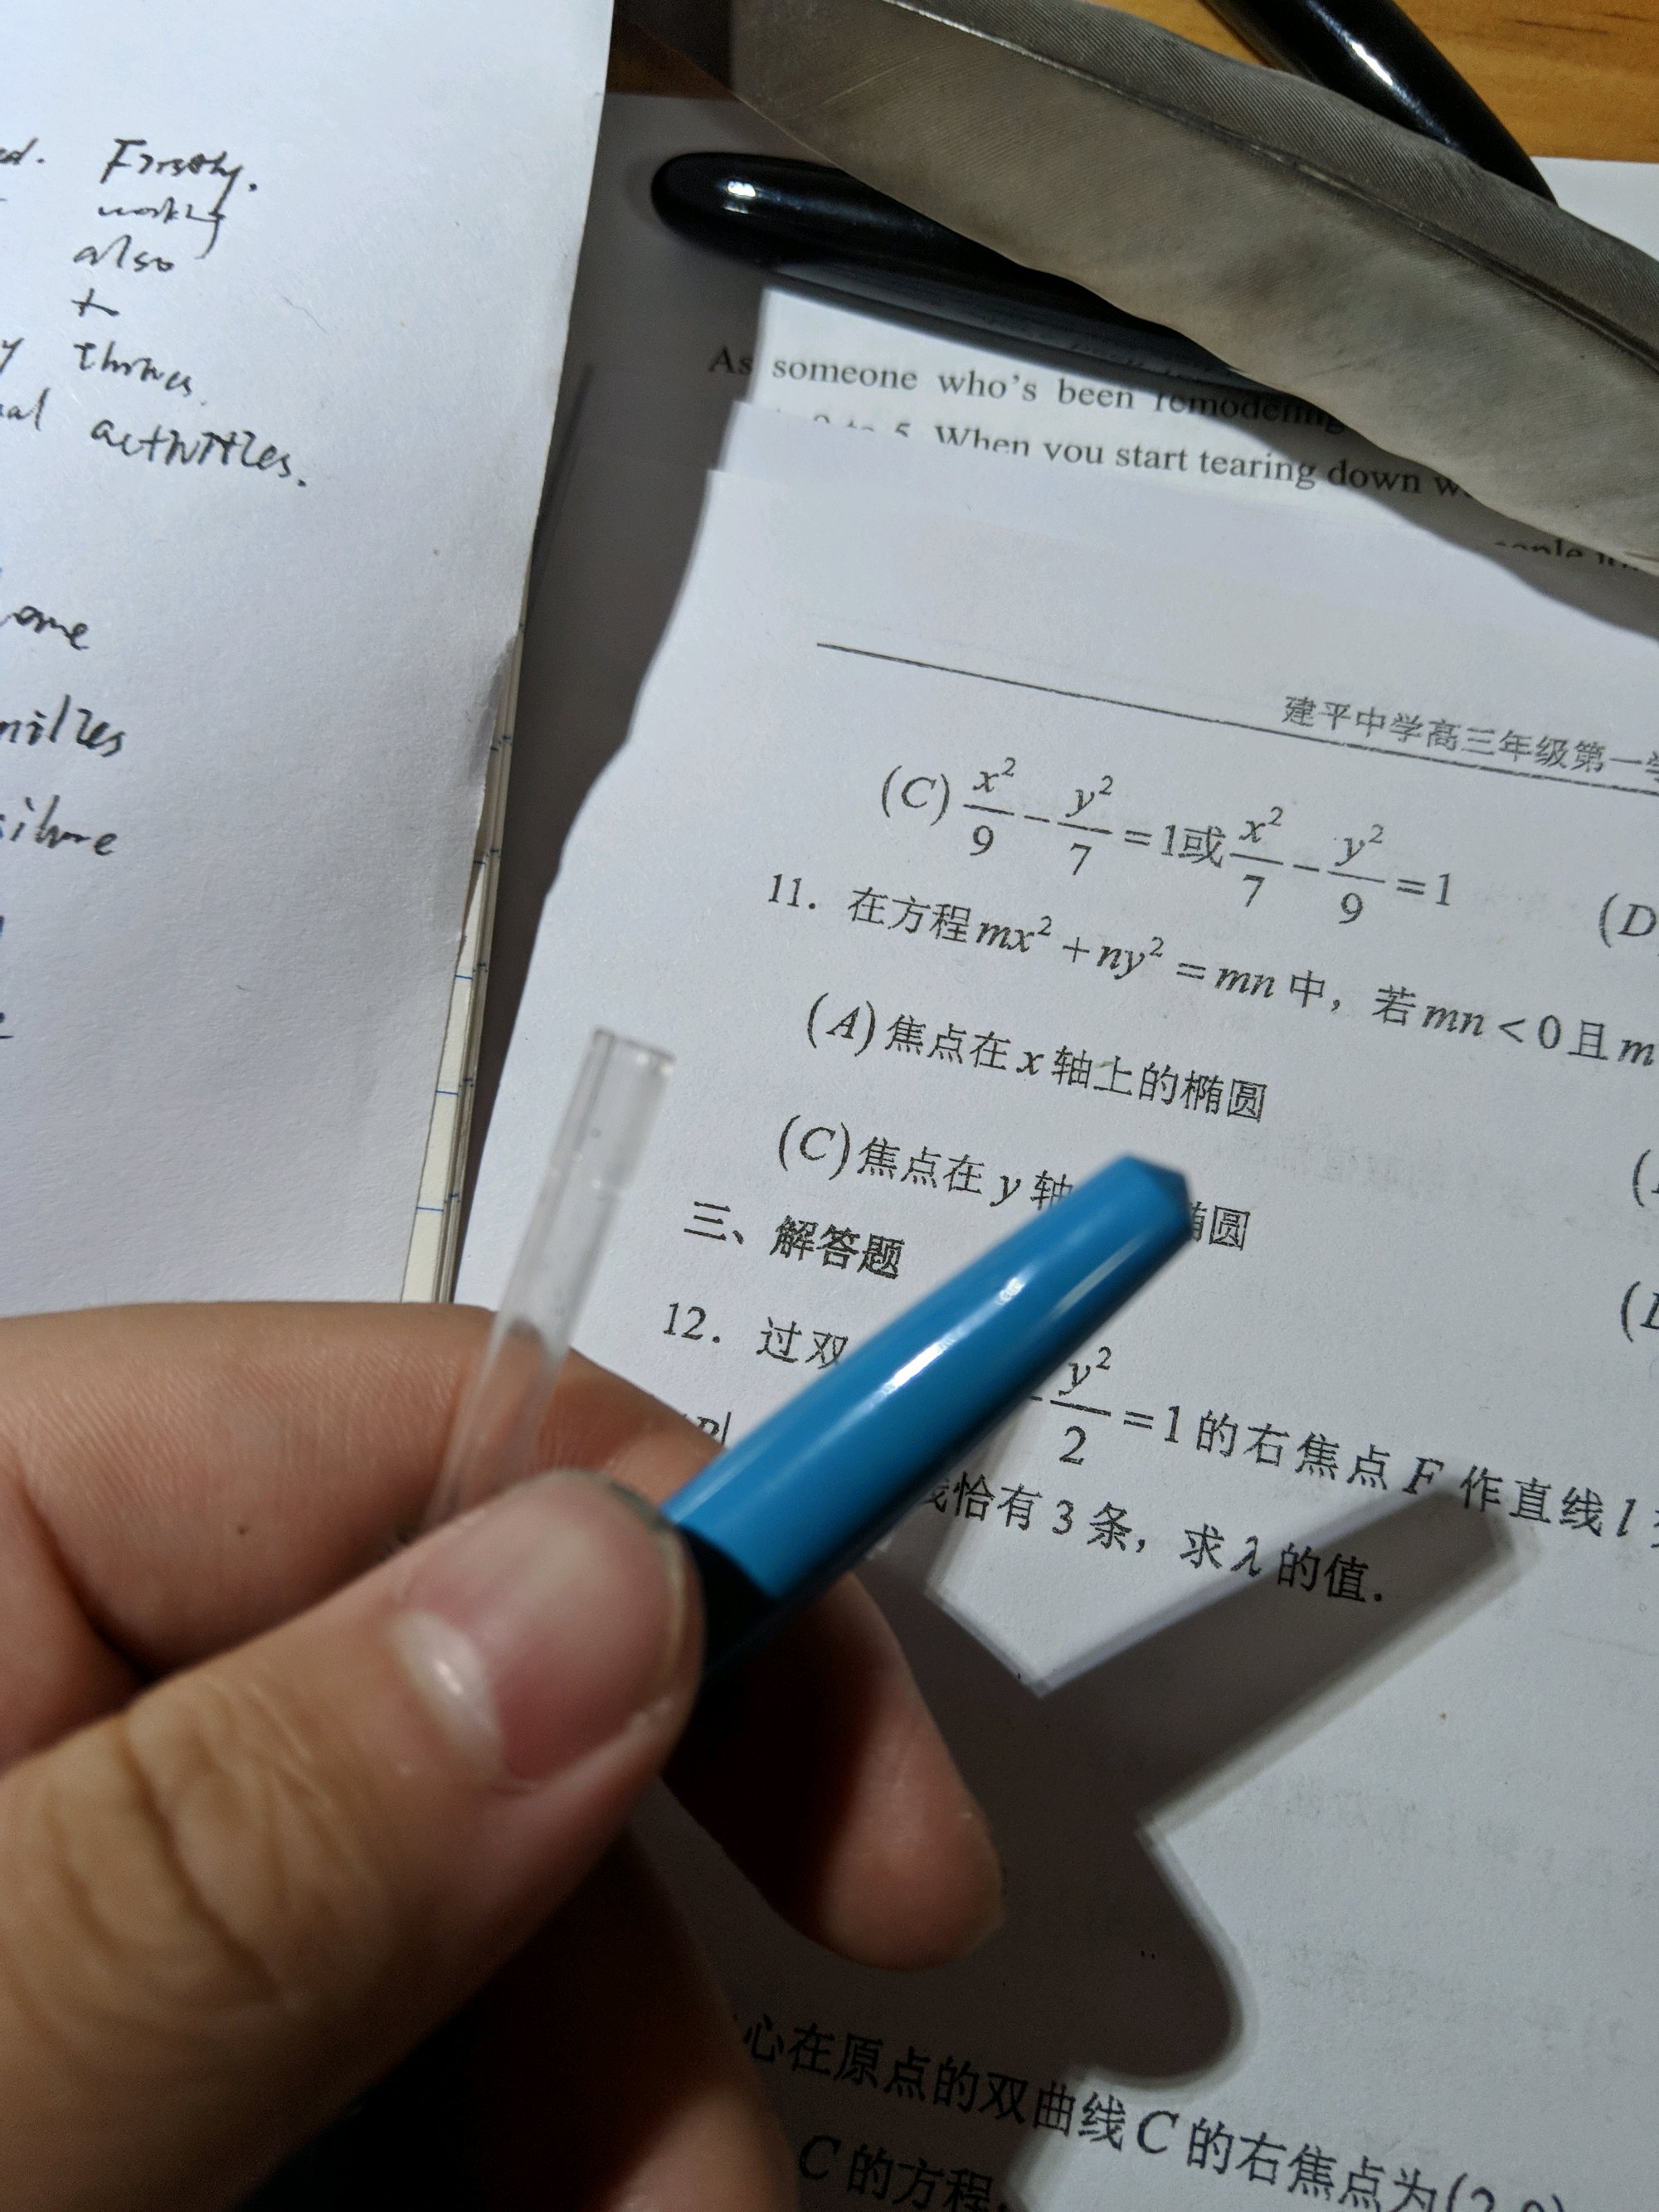 Firstly.
working
also
to
y things.
al activities.
ome
milies
ailure
As someone who's been remodeling
2 to 5. When you start tearing down w
建平中学高三年级第一学
(C) x²/9 - y²/7 = 1或 x²/7 - y²/9 = 1 (D
11. 在方程mx² + ny² = mn中，若mn < 0且m
(A)焦点在x轴上的椭圆
(C)焦点在y轴 椭圆
三、解答题
12. 过双 - y²/2 = 1的右焦点F作直线l
线恰有3条，求λ的值.
心在原点的双曲线C的右焦点为(2,0)
C的方程.